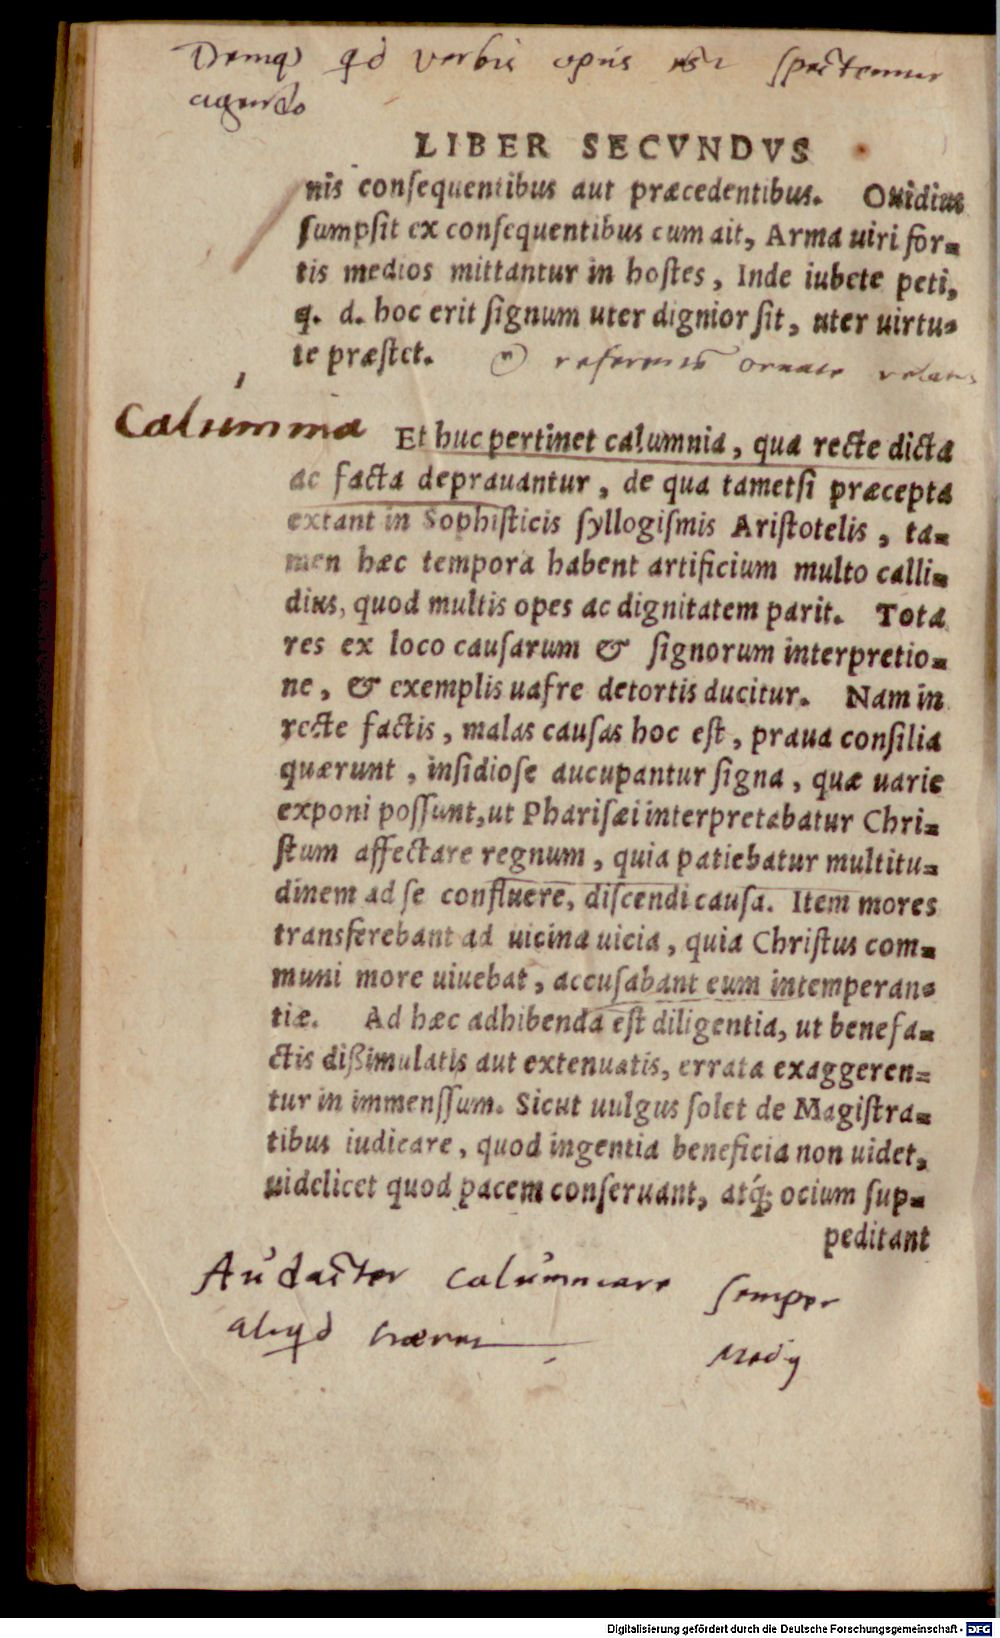 Demq̃ qd verbis opus est spectemur
agendo
LIBER SECVNDVS
nis conſequentibus aut præcedentibus. Ouidius
ſumpſit ex conſequentibus cum ait, Arma uiri for-
tis medios mittantur in hoſtes, Inde iubete peti,
q. d. hoc erit ſignum uter dignior ſit, uter uirtu-
te præſtet.
referentis ornate
Calumnia
Et huc pertinet calumnia, qua recte dicta
ac facta deprauantur, de qua tametſi præcepta
extant in Sophiſticis ſyllogiſmis Ariſtotelis, ta-
men hæc tempora habent artificium multo calli-
dius, quod multis opes ac dignitatem parit. Tota
res ex loco cauſarum & ſignorum interpretio-
ne, & exemplis uafre detortis ducitur. Nam in
recte factis, malas cauſas hoc eſt, praua conſilia
quærunt, inſidioſe aucupantur ſigna, quæ uarie
exponi poſſunt, ut Phariſæi interpretabatur Chri-
ſtum affectare regnum, quia patiebatur multitu-
dinem ad ſe confluere, diſcendi cauſa. Item mores
transferebant ad uicina uicia, quia Chriſtus com-
muni more uiuebat, accuſabant eum intemperan-
tiæ. Ad hæc adhibenda eſt diligentia, ut benefa-
ctis dißimulatis aut extenuatis, errata exaggeren-
tur in immenſſum. Sicut uulgus ſolet de Magiſtra-
tibus iudicare, quod ingentia beneficia non uidet,
uidelicet quod pacem conſeruant, atq́; ocium ſup-
peditant
Audacter calumniare semper
aliqd hæret
Digitalisierung gefördert durch die Deutsche Forschungsgemeinschaft - DFG